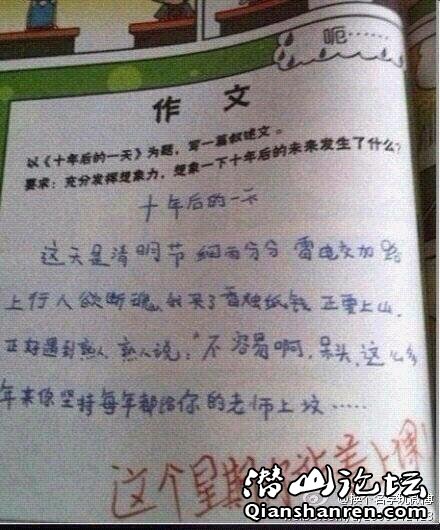 呃……
作 文
以《十年后的一天》为题，写一篇叙述文。
要求：充分发挥想象力，想象一下十年后的未来发生了什么？
十年后的一天
这天是清明节 细雨分分 雷电交加 路
上行人欲断魂，我买了香烛纸钱 正要上山，
正好遇到熟人 熟人说：“不容易啊，呆头，这么多
年来你坚持每年都给你的老师上坟……
这个星期 站着上课！
潜山论坛
Qianshanren.com